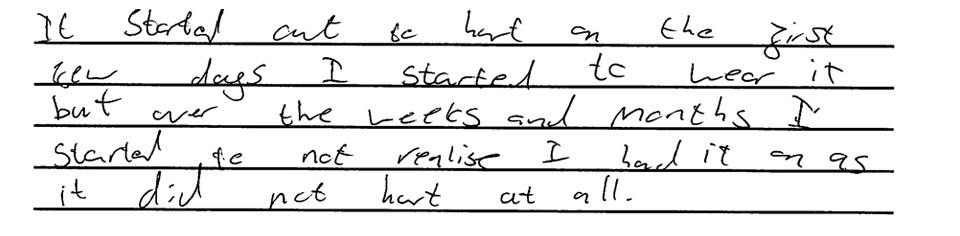 It Started out to hurt on the first
few days I started to wear it
but over the weeks and months I
started to not realise I had it on as
it did not hurt at all.